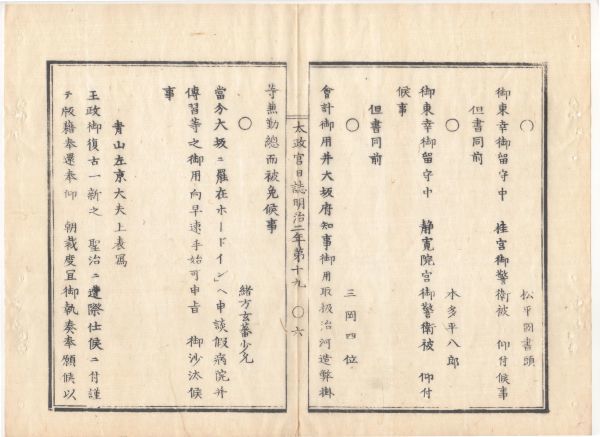 〇
松平図書頭
御東幸御留守中　桂宮御警衛被　仰付候事
但書同前
〇
本多平八郎
御東幸御留守中　静寛院宮御警衛被　仰付
候事
但書同前
〇
三岡四位
會計御用并大坂府知事御用取扱治河造幣掛
太政官日誌明治二年第十九　〇六
等無勤總而被免候事
〇
緒方玄蕃少允
當分大坂ニ罷在ホードインヘ申談假病院并
傳習等之御用向早速手始可申旨　御沙汰候
事
青山左京大夫上表寫
王政御復古一新之　聖治ニ遭際仕候ニ付謹
テ版籍奉還奉仰　朝裁度宜御執奏奉願候以